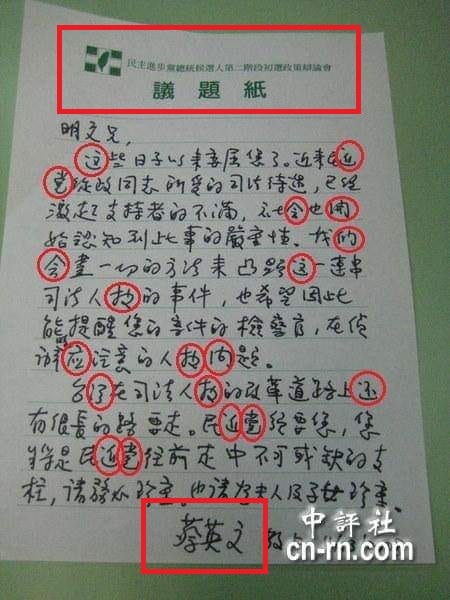 民主進步黨總統候選人第二階段初選政策辯論會
議題紙
明文兄，
这些日子以來委屈您了。近來民进
党從政同志所受的司法待遇，已經
激起支持者的不滿，社会也開
始認知到此事的嚴重性。我们
会盡一切的方法來凸顯这一連串
司法人权的事件，也希望因此
能提醒您的案件的檢察官，在偵
辦应注意的人权问題。
台湾在司法人权的改革道路上还
有很長的路要走。民进党須要您，您
將是民进党往前走中不可或缺的支
柱，請務必珍重。也請夫人及子女珍重。
蔡英文 敬上
中評社
cn-rn.com